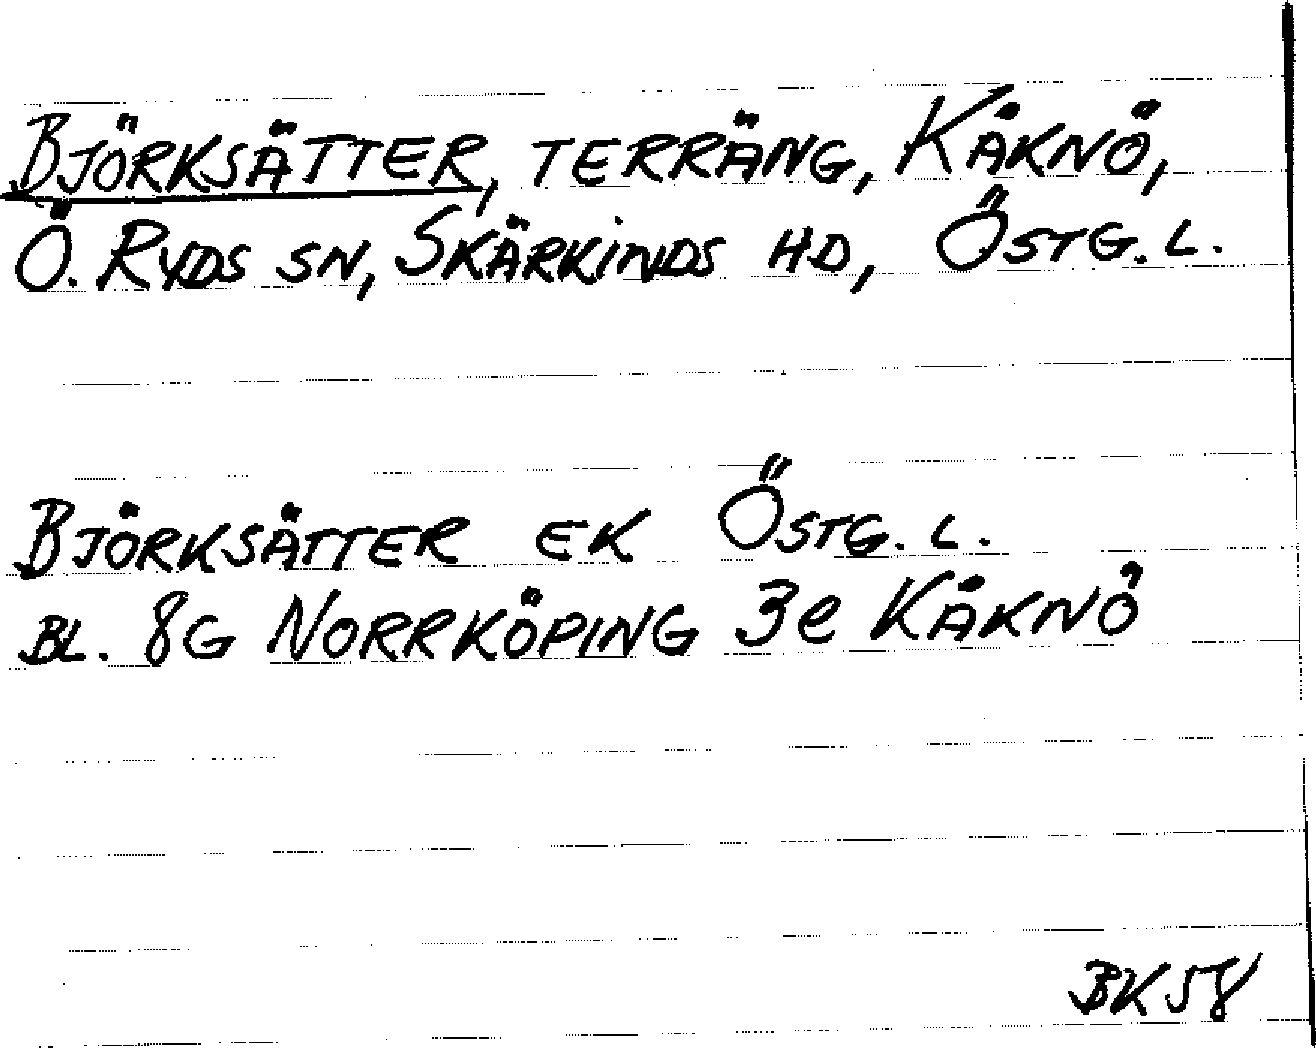 BJÖRKSÄTTER, TERRÄNG, KÅKNÖ,
Ö. RYDS SN, SKÄRKINDS HD, ÖSTG. L.
BJÖRKSÄTTER EK ÖSTG. L.
BL. 8G NORRKÖPING 3e KÅKNÖ
BK 58